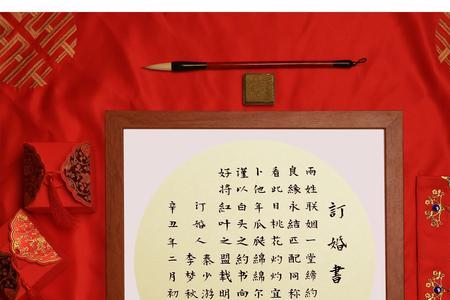 訂婚書
兩姓联姻一堂締约
良緣永结匹配同称
看此日桃花灼灼宜
卜他年瓜瓞綿綿尔
謹以白头之约书向
好将紅叶之盟载明
訂婚人 秦少游
李梦秋
辛丑年二月初